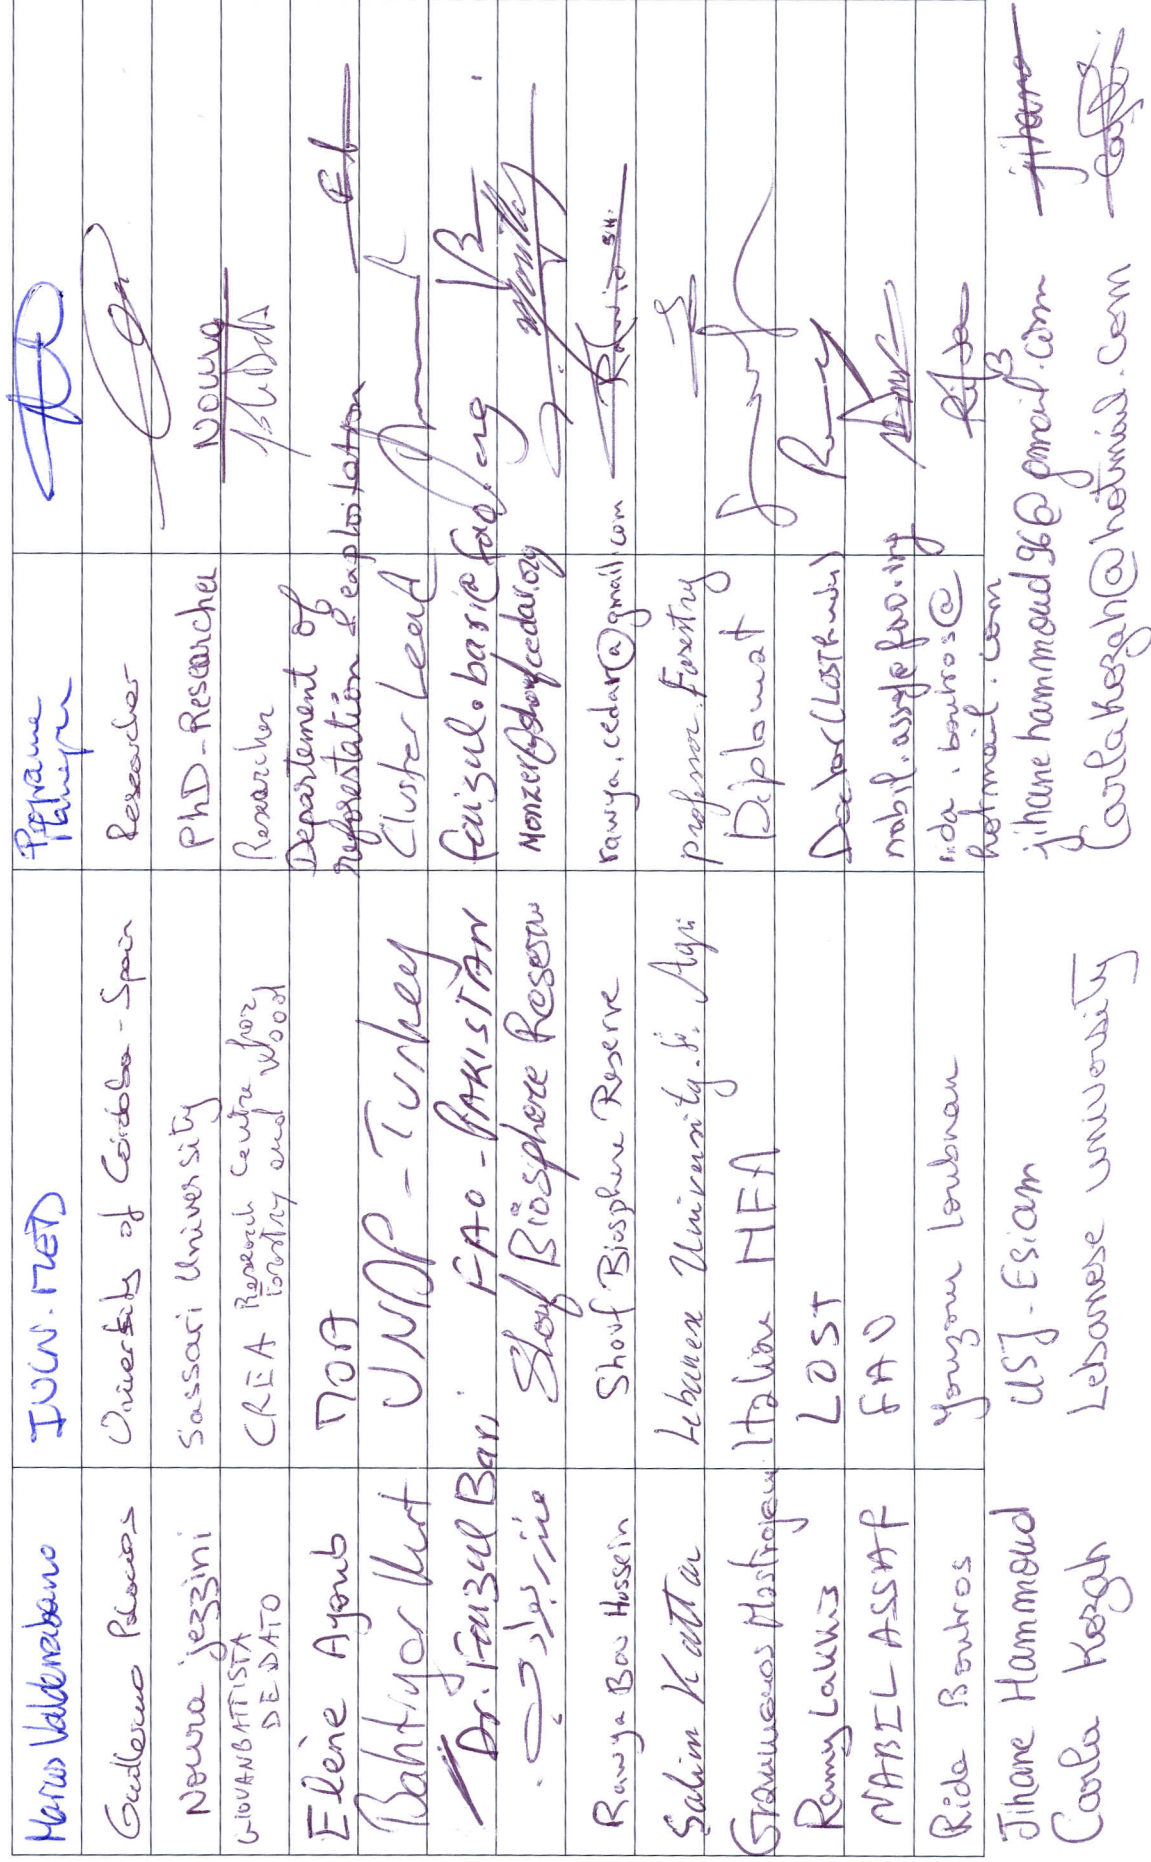 Marcos Valderrabano IUCN-MED Programme Manager
Guillermo Palacios University of Córdoba - Spain Researcher
Noura jezzini Sassari University PhD-Researcher Noura
GIOVANBATTISTA CREA Research Centre for Researcher
DE DATO Forestry and Wood
Elène Ayoub MOA Departement of
reforestation & exploitation
Bahtiyar Kurt UNDP - Turkey Cluster Lead
Dr. Faizul Bari FAO - PAKISTAN faizul.bari@fao.org
Shouf Biosphere Reserve Monzer@shoufcedar.org
Rawya Bou Hussein Shouf Biosphere Reserve rawya.cedar@gmail.com
Salim Kattar Lebanese University. Agri professor. Forestry
Grammenos Mastrojeni Italian MFA Diplomat
Ramy Lakkis LOST
NABIL ASSAF FAO
Rida Boutros Youzour Loubnan rida.boutros@ Rida B
hotmail.com
Jihane Hammoud USJ - ESiam jihanehammoud96@gmail.com jihane
Carla Kozah Lebanese university Carlakozah@hotmail.com